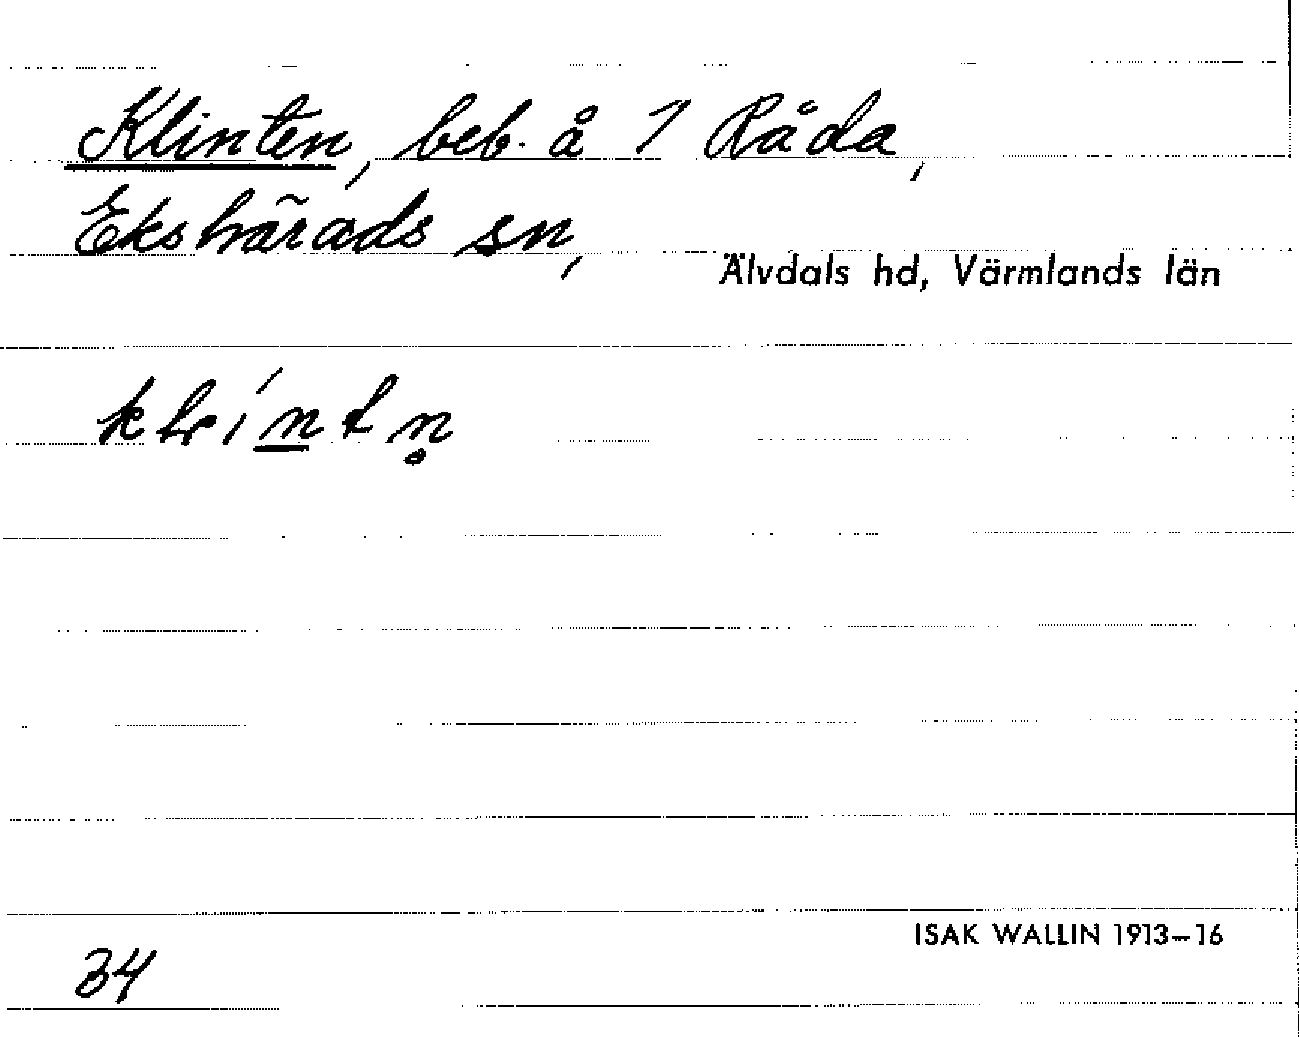 Klinten, beb. å 1 Råda,
Ekshärads sn,
Älvdals hd, Värmlands län
klíntn̥
ISAK WALLIN 1913–16
34